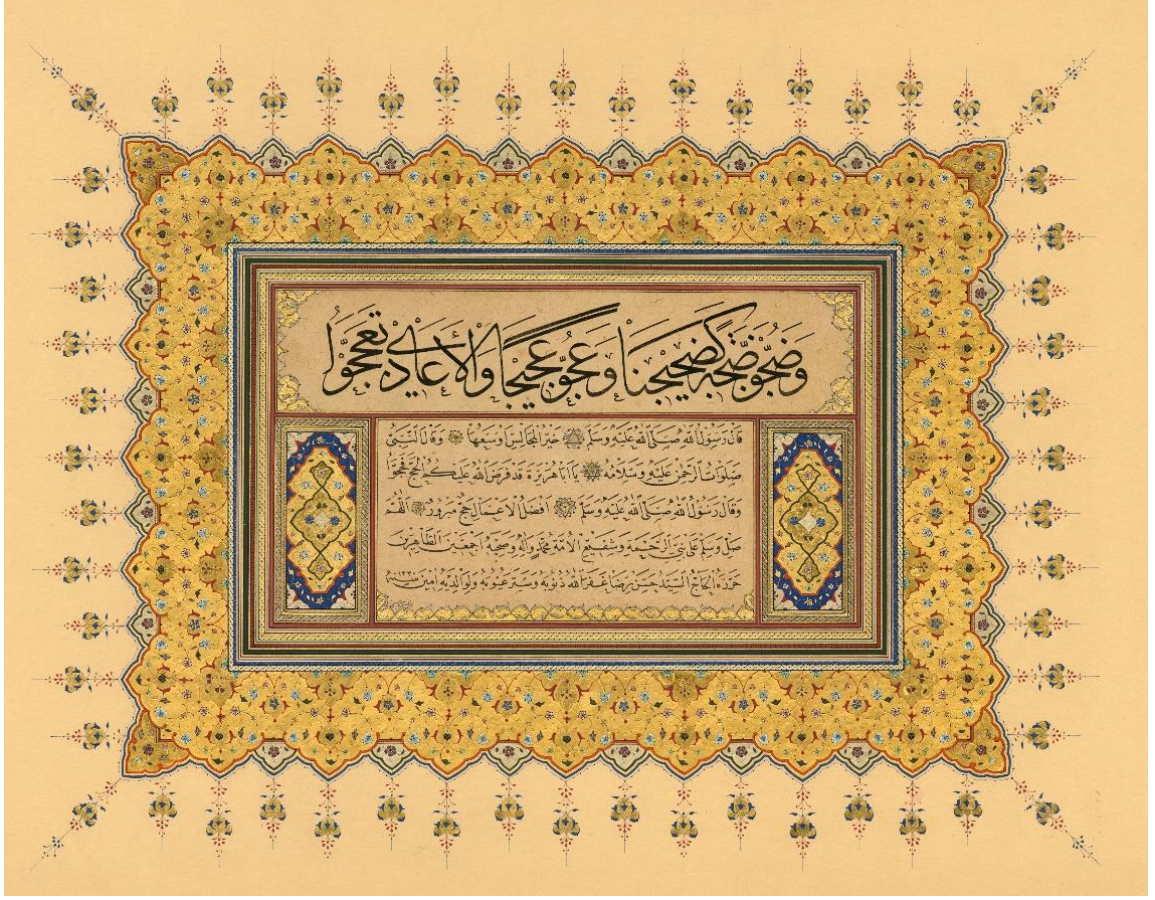 وَضَجُّوا ضَجَّةً كَضَجِيجِنَا وَعَجُّوا عَجِيجًا وَالْأَعَادِي تَعَجَّبُوا
قَالَ رَسُولُ اللهِ صَلَّى اللهُ عَلَيْهِ وَسَلَّمَ خَيْرُ الْمَجَالِسِ أَوْسَعُهَا وَقَالَ النَّبِيُّ
صَلَوَاتُ الرَّحْمٰنِ عَلَيْهِ وَسَلَامُهُ يَا أَبَا هُرَيْرَةَ قَدْ فَرَضَ اللهُ عَلَيْكُمُ الْحَجَّ فَحُجُّوا
وَقَالَ رَسُولُ اللهِ صَلَّى اللهُ عَلَيْهِ وَسَلَّمَ أَفْضَلُ الْأَعْمَالِ حَجٌّ مَبْرُورٌ اَللّٰهُمَّ
صَلِّ وَسَلِّمْ عَلَى نَبِيِّ الرَّحْمَةِ وَشَفِيعِ الْأُمَّةِ مُحَمَّدٍ وَآلِهِ وَصَحْبِهِ أَجْمَعِينَ الطَّاهِرِينَ
الْحَاجُّ السَّيِّدُ حَسَن رِضَا غَفَرَ اللهُ ذُنُوبَهُ وَسَتَرَ عُيُوبَهُ وَلِوَالِدَيْهِ آمِينَ سنة